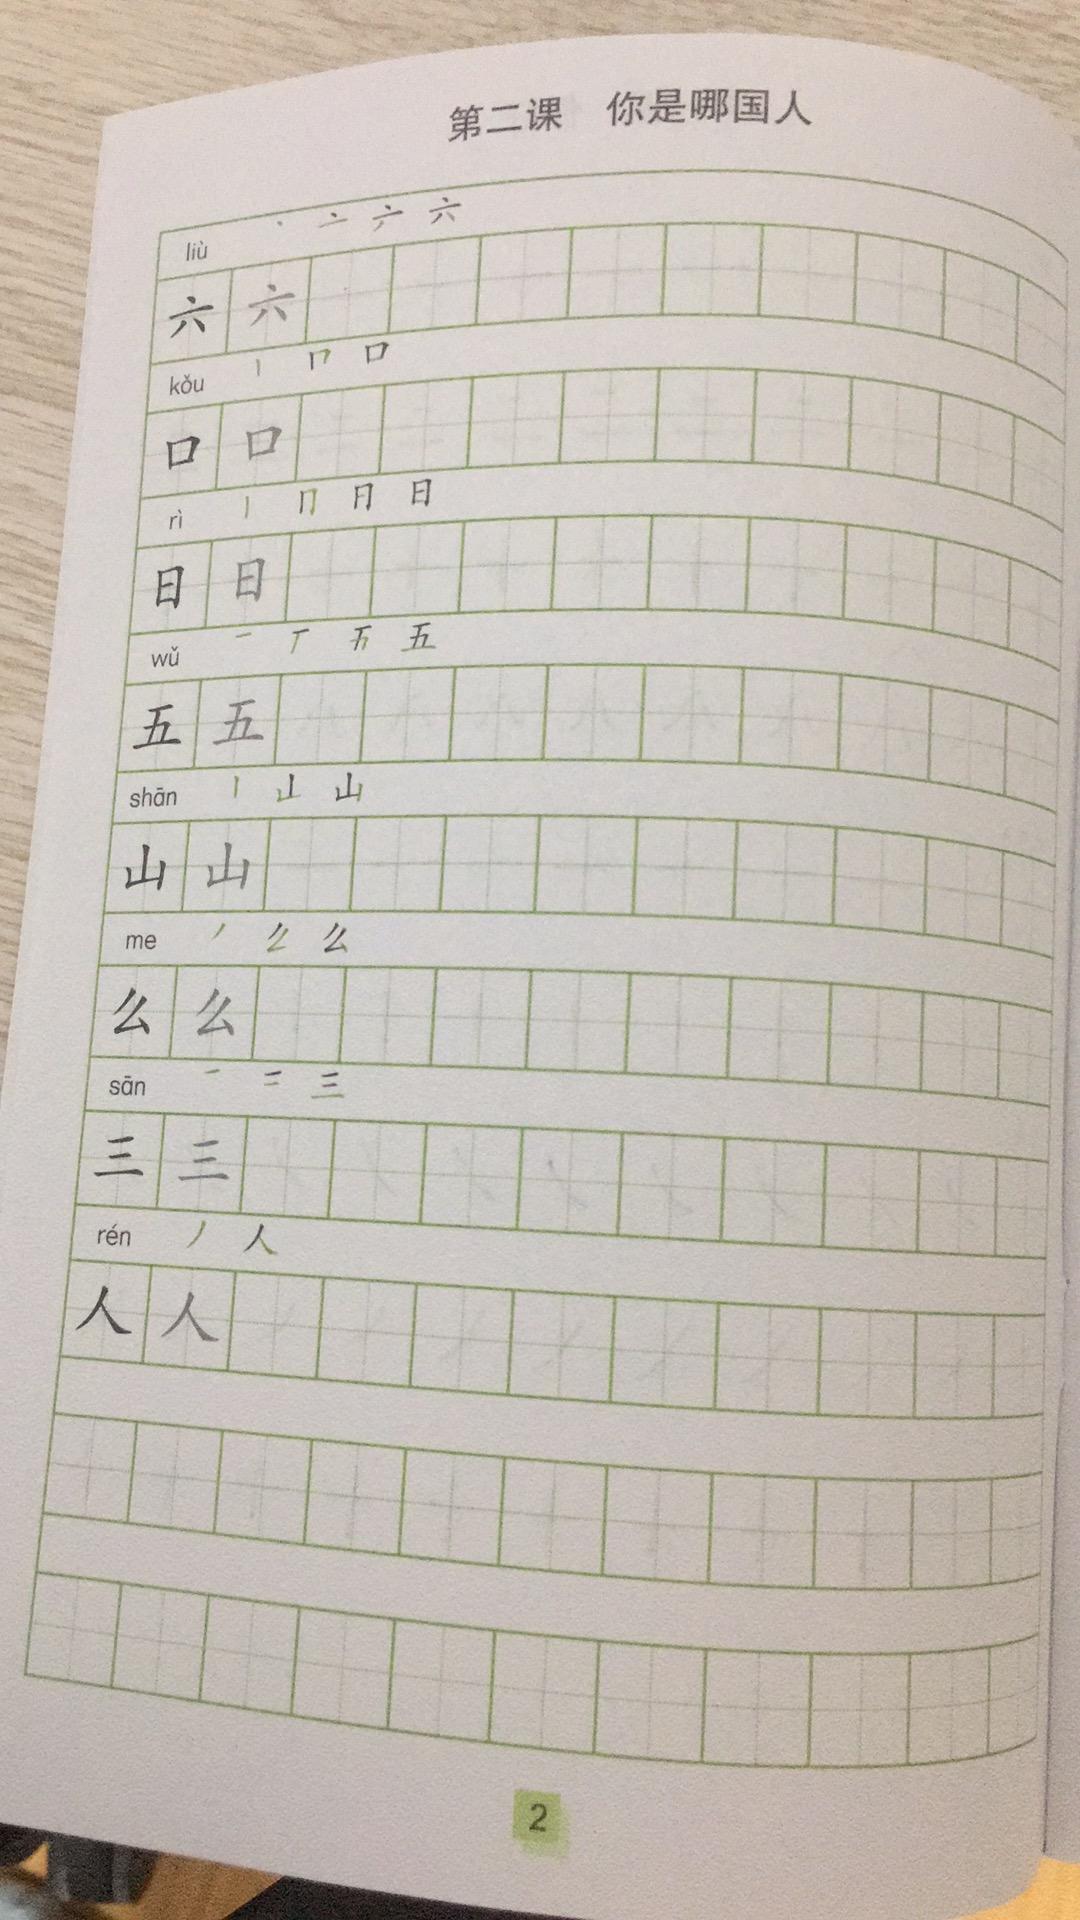 第二课 你是哪国人
liù 丶 亠 六 六
六 六
kǒu 丨 冂 口
口 口
rì 丨 冂 日
日 日
wǔ 一 丅 五
五 五
shān 丨 山
山 山
me 丿 么
么 么
sān 一 二 三
三 三
rén 丿 人
人 人
2